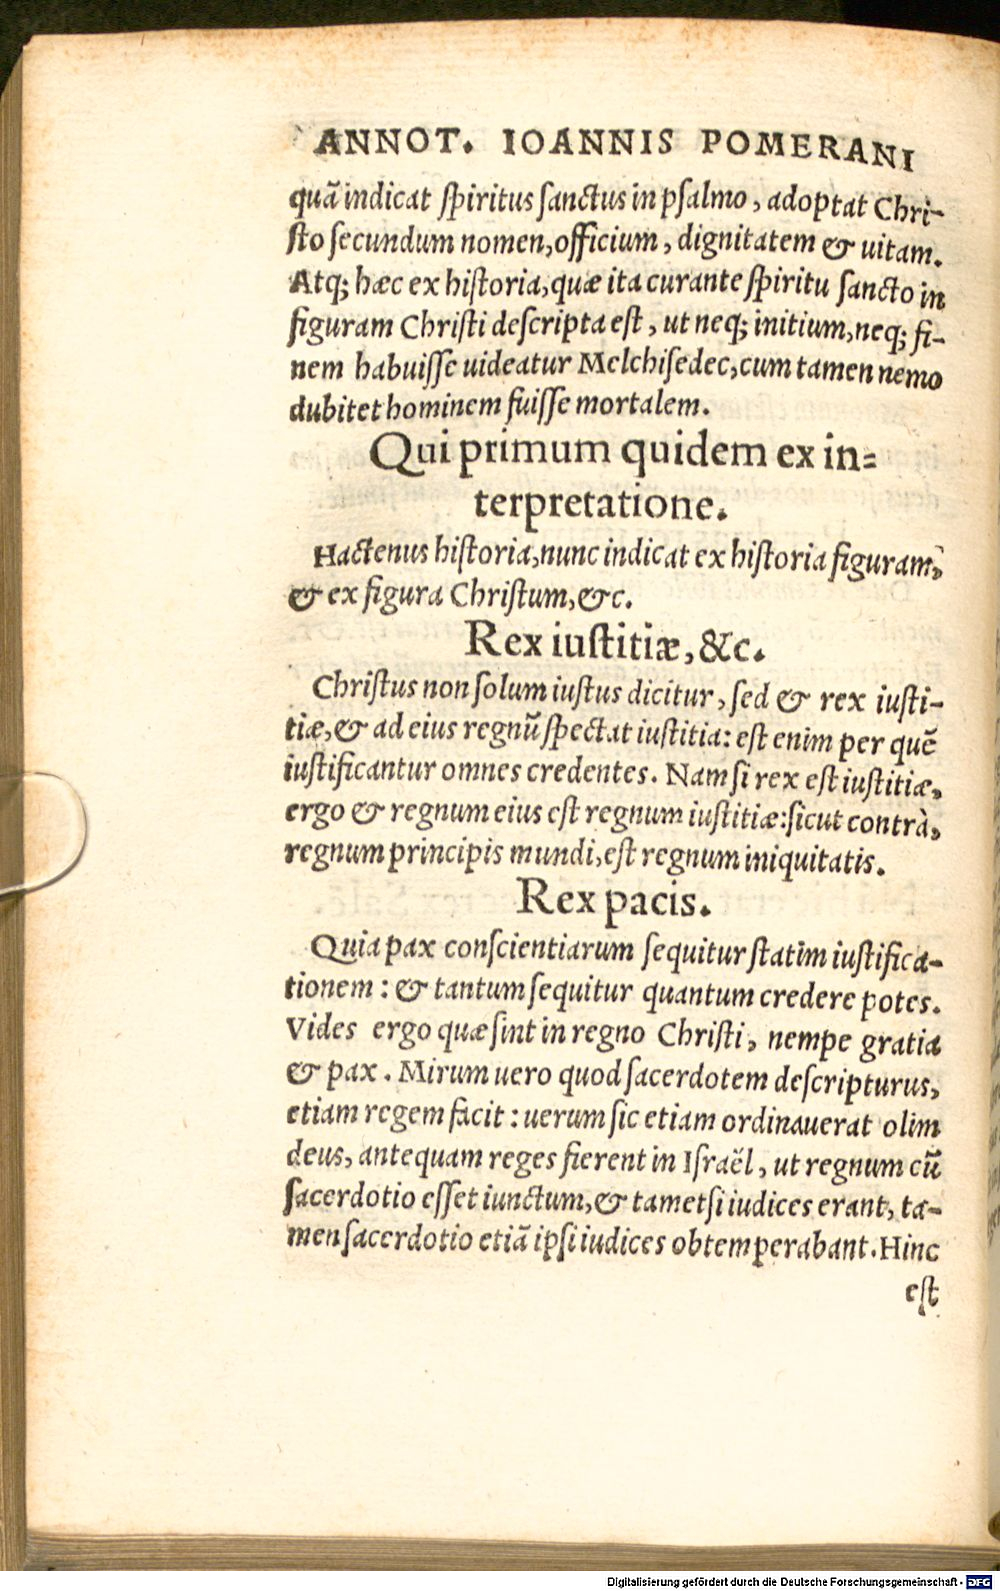 ANNOT. IOANNIS POMERANI
quã indicat ſpiritus ſanctus in pſalmo, adoptat Chri-
ſto ſecundum nomen, officium, dignitatem & uitam.
Atq; hæc ex hiſtoria, quæ ita curante ſpiritu ſancto in
figuram Chriſti deſcripta eſt, ut neq; initium, neq; fi-
nem habuiſſe uideatur Melchiſedec, cum tamen nemo
dubitet hominem fuiſſe mortalem.
Qui primum quidem ex in-
terpretatione.
Hactenus hiſtoria, nunc indicat ex hiſtoria figuram,
& ex figura Chriſtum, &c.
Rex iuſtitiæ, &c.
Chriſtus non ſolum iuſtus dicitur, ſed & rex iuſti-
tiæ, & ad eius regnũ ſpectat iuſtitia: eſt enim per quẽ
iuſtificantur omnes credentes. Nam ſi rex eſt iuſtitiæ,
ergo & regnum eius eſt regnum iuſtitiæ: ſicut contrà,
regnum principis mundi, eſt regnum iniquitatis.
Rex pacis.
Quia pax conſcientiarum ſequitur ſtatim iuſtifica-
tionem: & tantum ſequitur quantum credere potes.
Vides ergo quæ ſint in regno Chriſti, nempe gratia
& pax. Mirum uero quod ſacerdotem deſcripturus,
etiam regem facit: uerum ſic etiam ordinauerat olim
deus, antequam reges fierent in Iſraël, ut regnum cũ
ſacerdotio eſſet iunctum, & tametſi iudices erant, ta-
men ſacerdotio etiã ipſi iudices obtemperabant. Hinc
eſt
Digitalisierung gefördert durch die Deutsche Forschungsgemeinschaft - DFG